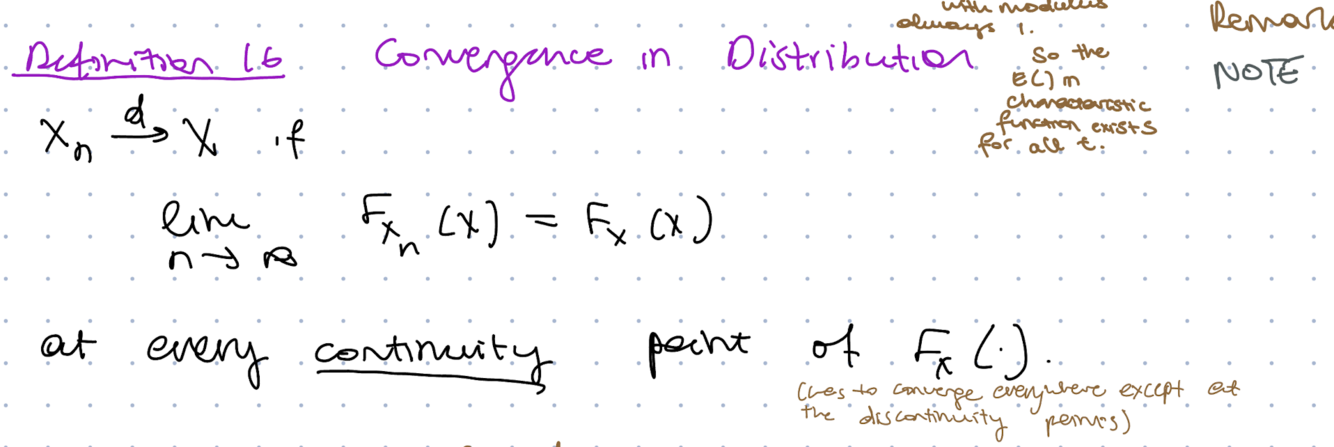 with modulus
always 1.
So the
E() in
characteristic
function exists
for all t.
Remark
NOTE
Definition 1.6 Convergence in Distribution
Xₙ →ᵈ X if
lim n→∞ F_{Xₙ}(x) = F_X(x)
at every continuity point of F_X(·).
(has to converge everywhere except at
the discontinuity points)